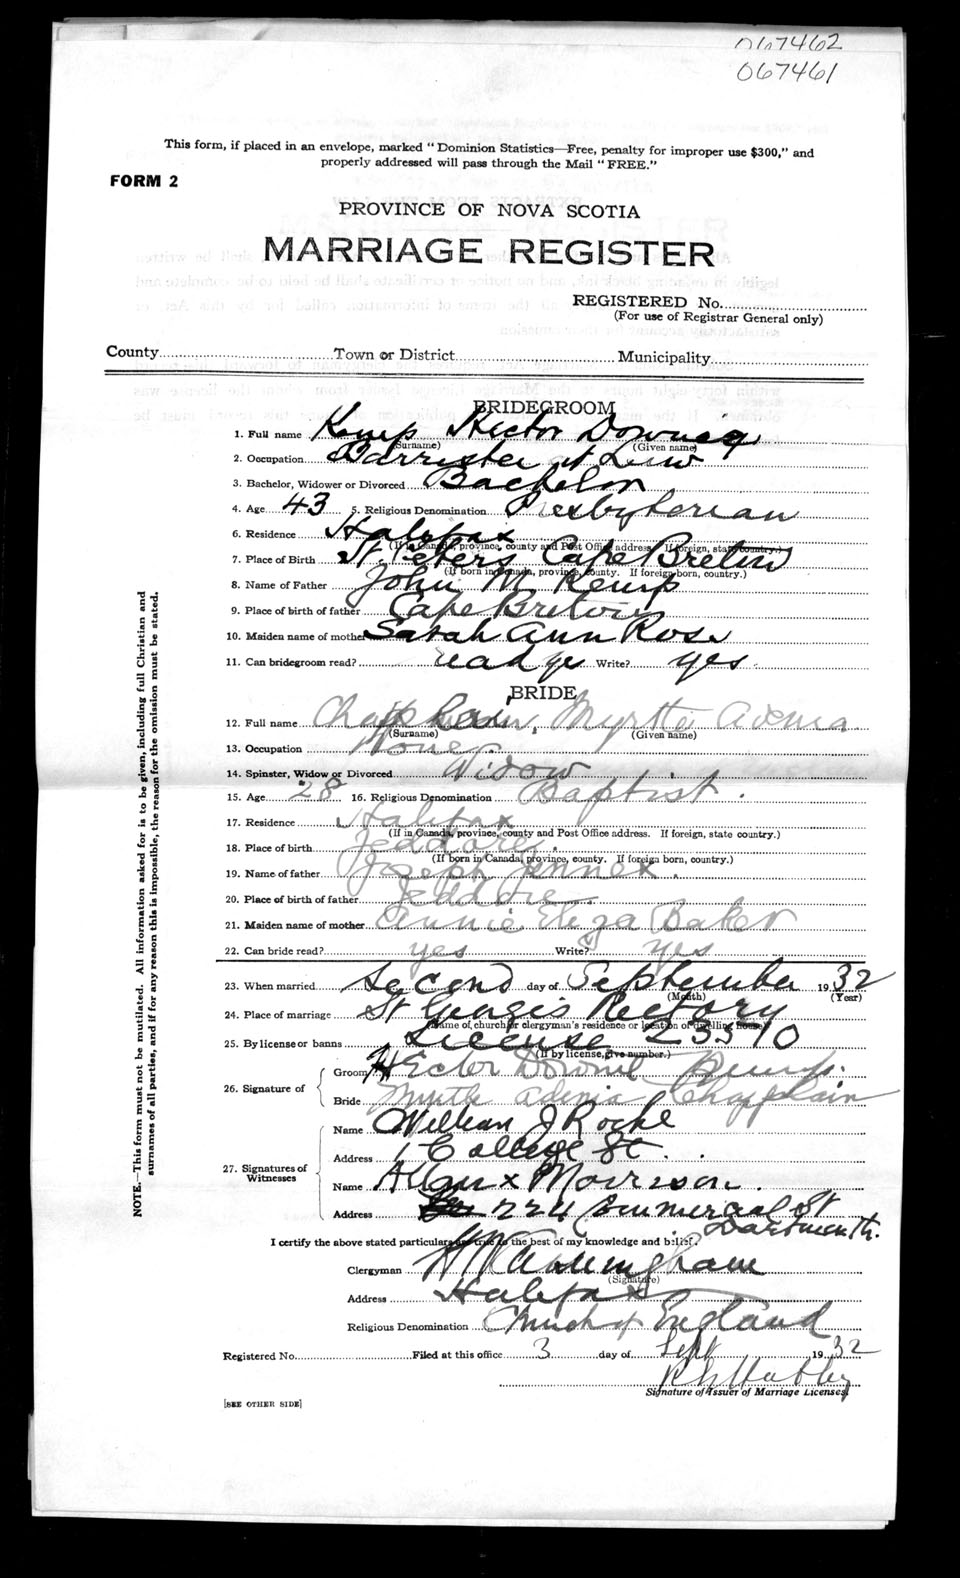 067462
067461
This form, if placed in an envelope, marked "Dominion Statistics—Free, penalty for improper use $300," and
properly addressed will pass through the Mail "FREE."
FORM 2
PROVINCE OF NOVA SCOTIA
MARRIAGE REGISTER
REGISTERED No.
(For use of Registrar General only)
County Town or District Municipality
BRIDEGROOM
1. Full name Kemp Hector Downey
(Surname) (Given name)
2. Occupation Barrister at Law
3. Bachelor, Widower or Divorced Bachelor
4. Age 43 5. Religious Denomination Presbyterian
6. Residence Halifax
(If in Canada, province, county and Post Office address. If foreign, state country.)
7. Place of Birth St. Peters Cape Breton
(If born in Canada, province, county. If foreign born, country.)
8. Name of Father John M Kemp
9. Place of birth of father Cape Breton
10. Maiden name of mother Sarah Ann Rose
11. Can bridegroom read? read ye Write? yes
BRIDE
12. Full name Chapplain, Myrtle Adenia
(Surname) (Given name)
13. Occupation None
14. Spinster, Widow or Divorced Widow
15. Age 28 16. Religious Denomination Baptist.
17. Residence Halifax
(If in Canada, province, county and Post Office address. If foreign, state country.)
18. Place of birth Jeddore
(If born in Canada, province, county. If foreign born, country.)
19. Name of father Joseph Jennex.
20. Place of birth of father Jeddore
21. Maiden name of mother Annie Eliza Baker
22. Can bride read? yes Write? yes
23. When married Second day of September 1932
(Month) (Year)
24. Place of marriage St Georges Rectory
(Name of church or clergyman's residence or location of dwelling house)
25. By license or banns License 23510
(If by license, give number.)
26. Signature of
Groom Hector Kemp
Bride Myrtle Adenia Chapplain
27. Signatures of Witnesses
Name William J Roche
Address College St.
Name Morrison.
Address 224 Commercial St
Dartmouth.
I certify the above stated particulars are true to the best of my knowledge and belief.
Clergyman Cunningham
(Signature)
Address Halifax
Religious Denomination Church of England
Registered No. Filed at this office 3 day of Sept 1932
Signature of Issuer of Marriage Licenses
[SEE OTHER SIDE]
NOTE.—This form must not be mutilated. All information asked for is to be given, including full Christian and
surnames of all parties, and if for any reason this is impossible, the reason for the omission must be stated.